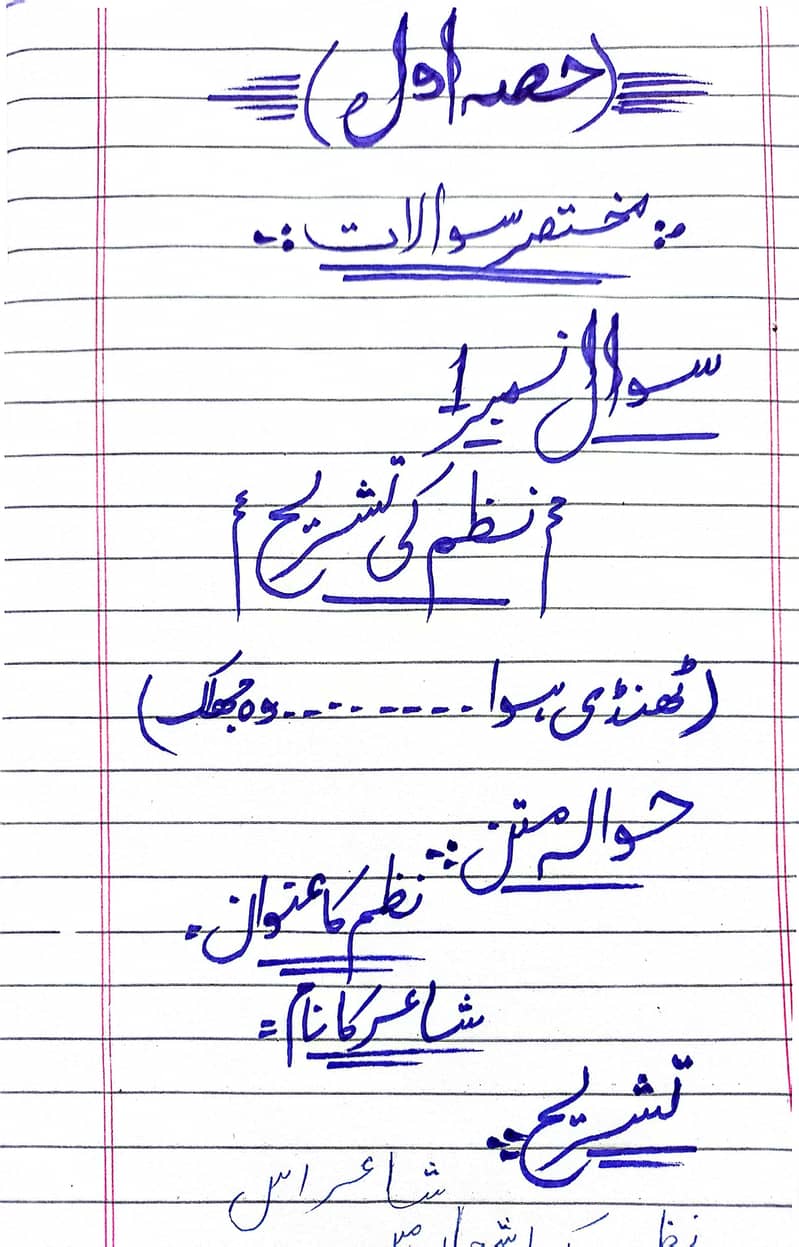 (حصہ اول)
مختصر سوالات
سوال نمبر 1
نظم کی تشریح
(ٹھنڈی ہوا ---------- وہ جھلک)
حوالہ متن:-
نظم کا عنوان:
شاعر کا نام =
تشریح:
شاعر اس